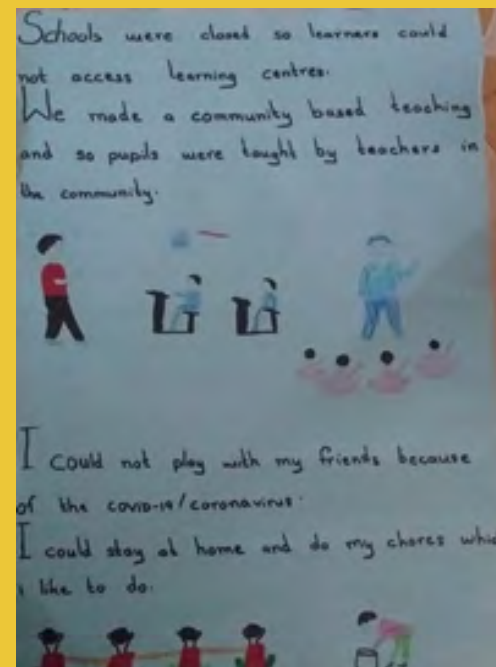 Schools were closed so learners could
not access learning centres.
We made a community based teaching
and so pupils were taught by teachers in
the community.
I could not play with my friends because
of the covid-19/coronavirus.
I could stay at home and do my chores which
i like to do.